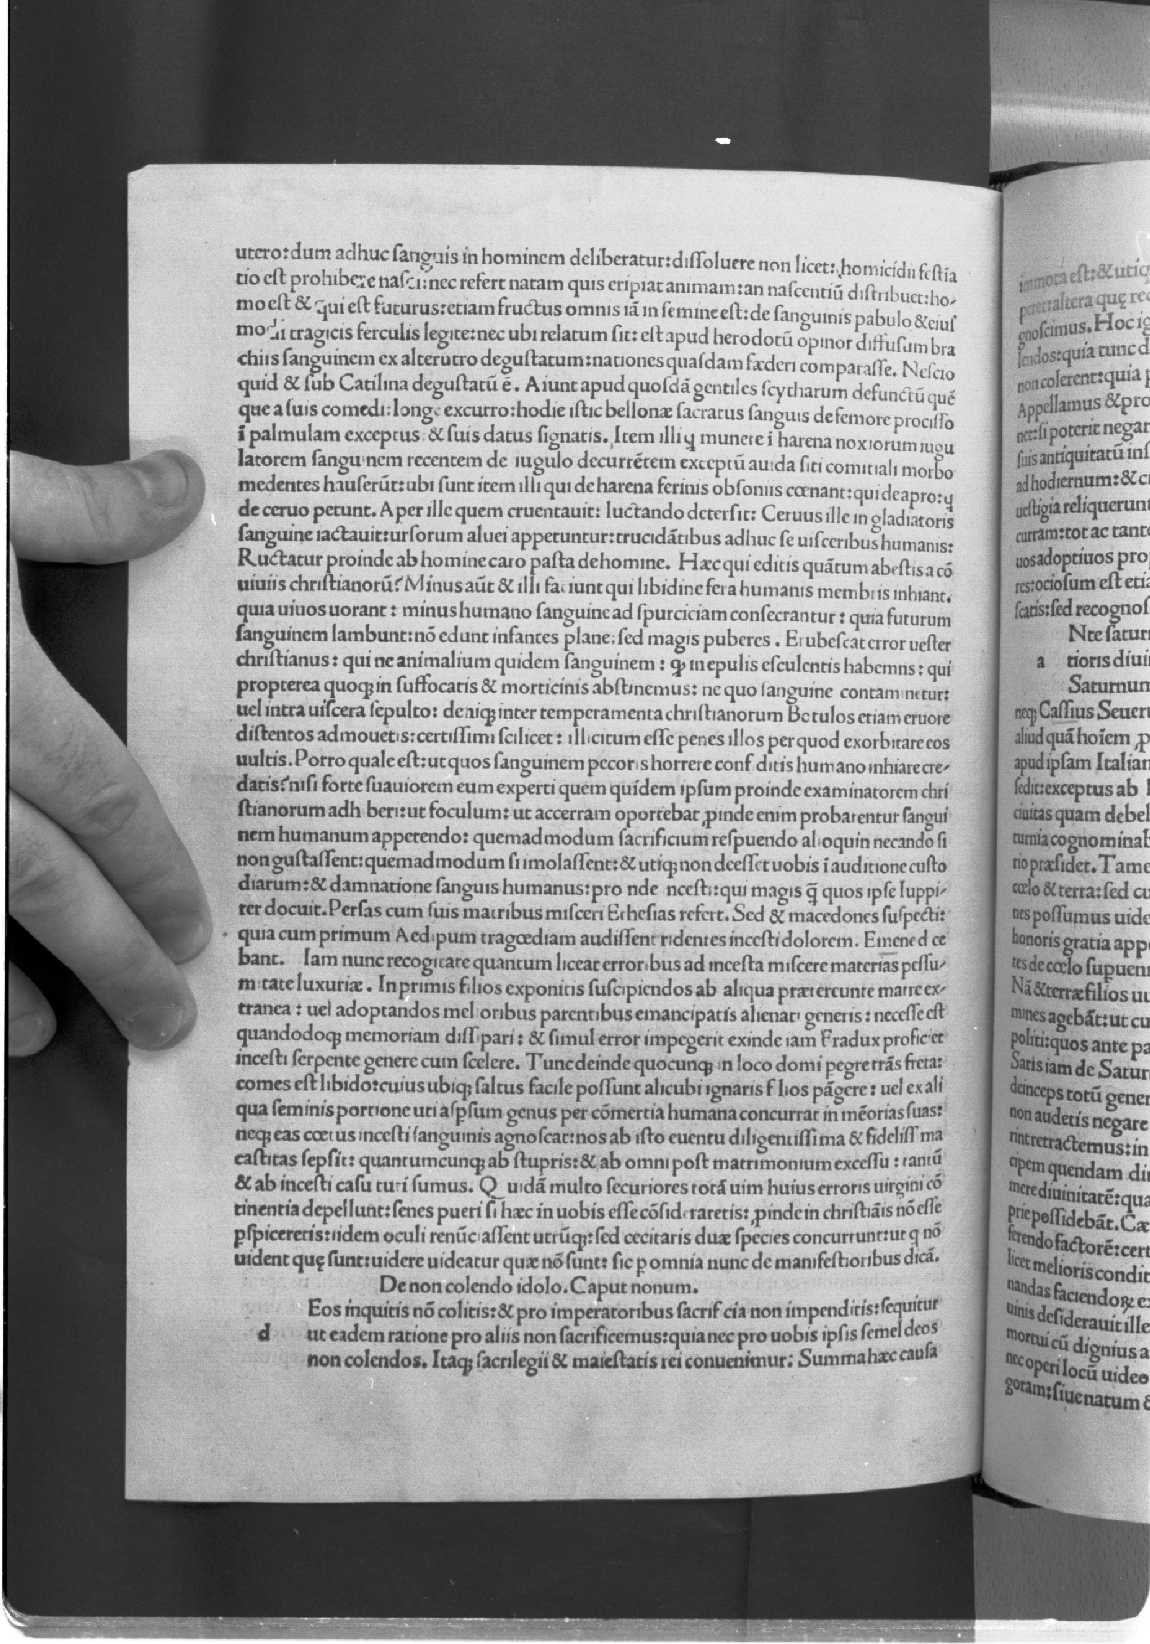 utero:dum adhuc ſanguis in hominem deliberatur:diſſoluere non licet:homicidii feſtia
tio eſt prohibere naſci:nec refert natam quis eripiat animam:an naſcentiū diſtribuet:ho-
mo eſt & qui eſt futurus:etiam fructus omnis iā in ſemine eſt:de ſanguinis pabulo & eiuſ
modi tragicis ferculis legite:nec ubi relatum ſit: eſt apud herodotū opinor diffuſum bra
chiis ſanguinem ex alterutro deguſtatum:nationes quaſdam fæderi comparaſſe. Neſcio
quid & ſub Catilina deguſtatū ē. Aiunt apud quoſdā gentiles ſcytharum defunctū quē
que a ſuis comedi:longe excurro:hodie iſtic bellonæ ſacratus ſanguis de femore prociſſo
ī palmulam exceptus & ſuis datus ſignatis. Item illi ꝗ munere ī harena noxiorum iugu
latorem ſanguinem recentem de iugulo decurrētem exceptū auida ſiti comitiali morbo
medentes hauſerūt:ubi ſunt item illi qui de harena ferinis obſoniis cœnant:qui de apro:ꝗ
de ceruo petunt. Aper ille quem cruentauit: luctando deterſit: Ceruus ille in gladiatoris
ſanguine iactauit:urſorum aluei appetuntur:trucidātibus adhuc ſe uiſceribus humanis:
Ructatur proinde ab homine caro paſta de homine. Hæc qui editis quātum abeſtis a cō
uiuiis chriſtianorū? Minus aūt & illi faciunt qui libidine fera humanis membris inhiant.
quia uiuos uorant: minus humano ſanguine ad ſpurciciam conſecrantur: quia futurum
ſanguinem lambunt:nō edunt infantes plane:ſed magis puberes. Erubeſcat error ueſter
chriſtianus: qui ne animalium quidem ſanguinem: ꝙ in epulis eſculentis habemns: qui
propterea quoqꝫ in ſuffocatis & morticinis abſtinemus: ne quo ſanguine contaminetur:
uel intra uiſcera ſepulto: deniqꝫ inter temperamenta chriſtianorum Botulos etiam cruore
diſtentos admouetis:certiſſimi ſcilicet: illicitum eſſe penes illos per quod exorbitare eos
uultis. Porro quale eſt:ut quos ſanguinem pecoris horrere confiditis humano inhiare cre-
datis?niſi forte ſuauiorem eum experti quem quidem ipſum proinde examinatorem chri
ſtianorum adhiberi:ut foculum: ut accerram oportebat ꝓinde enim probarentur ſangui
nem humanum appetendo: quemadmodum ſacrificium reſpuendo alioquin necando ſi
non guſtaſſent:quemadmodum ſi imolaſſent:& utiqꝫ non deeſſet uobis ī auditione cuſto
diarum:& damnatione ſanguis humanus:proinde inceſti:qui magis ꝗ̄ quos ipſe Iuppi-
ter docuit. Perſas cum ſuis matribus miſceri Etheſias refert. Sed & macedones ſuſpecti:
quia cum primum Aedipum tragœdiam audiſſent ridentes inceſti dolorem. Emene dice
bant. Iam nunc recogitare quantum liceat erroribus ad inceſta miſcere materias peſſu-
mitate luxuriæ. In primis filios exponitis ſuſcipiendos ab aliqua prætereunte matre ex-
tranea: uel adoptandos melioribus parentibus emancipatis alienati generis: neceſſe eſt
quandodoqꝫ memoriam diſſipari: & ſimul error impegerit exinde iam Fradux proficiet
inceſti ſerpente genere cum ſcelere. Tunc deinde quocunqꝫ in loco domi pegre trās freta:
comes eſt libido:cuius ubiqꝫ ſaltus facile poſſunt alicubi ignaris filios pāgere: uel ex ali
qua ſeminis portione uti aſpſum genus per cōmertia humana concurrat in mēorias ſuas:
neqꝫ eas cœtus inceſti ſanguinis agnoſcat:nos ab iſto euentu diligentiſſima & fideliſſima
caſtitas ſepſit: quantumcunqꝫ ab ſtupris:& ab omni poſt matrimonium exceſſu: tantū
& ab inceſti caſu tuti ſumus. Quidā multo ſecuriores totā uim huius erroris uirgini cō
tinentia depellunt:ſenes pueri ſi hæc in uobis eſſe cōſideraretis: ꝓinde in chriſtiāis nō eſſe
ꝑſpiceretis:iidem oculi renūciaſſent utrūqꝫ: ſed cecitatis duæ ſpecies concurrunt:ut q nō
uident quę ſunt:uidere uideatur quæ nō ſunt: ſic ꝑ omnia nunc de manifeſtioribus dicā.
De non colendo idolo. Caput nonum.
Eos inquitis nō colitis:& pro imperatoribus ſacrificia non impenditis:ſequitur
d ut eadem ratione pro aliis non ſacrificemus:quia nec pro uobis ipſis ſemel deos
non colendos. Itaqꝫ ſacrilegii & maieſtatis rei conuenimur: Summa hæc cauſa
immota eſt:& utiq
altera quę rec
gnoſcimus. Hoc ig
quia tunc d
non colerent:quia p
Appellamus & pro
net:ſi poterit negar
ſuis antiquitatū inſ
ad hodiernum:& c
ueſtigia reliquerunt
curram:tot ac tant
uos adoptiuos pro
res:ocioſum eſt etia
ſcatis:ſed recognoſ
Nte ſatur
a tioris diui
Saturnun
neqꝫ Caſſius Seueru
aliud quā hoīem ꝓ
apud ipſam Italian
ſedit:exceptus ab
ciuitas quam debel
turnia cognominab
rio præſidet. Tame
cœlo & terra: ſed cu
nes poſſumus uide
honoris gratia app
tes de cœlo ſupueni
Nā & terræ filios uu
mines agebāt:ut cu
politi:quos ante pa
Satis iam de Satur
deinceps totū gener
non audetis negare
rint retractemus:in
cipem quendam di
mere diuinitatē:qua
ptie poſſidebāt. Cæ
ferendo factorē:cert
licet melioris condit
nandas faciendoꝝ e
uinis deſiderauit ille
mortui cū dignius a
nec operi locū uideo
goram:ſiue natum &